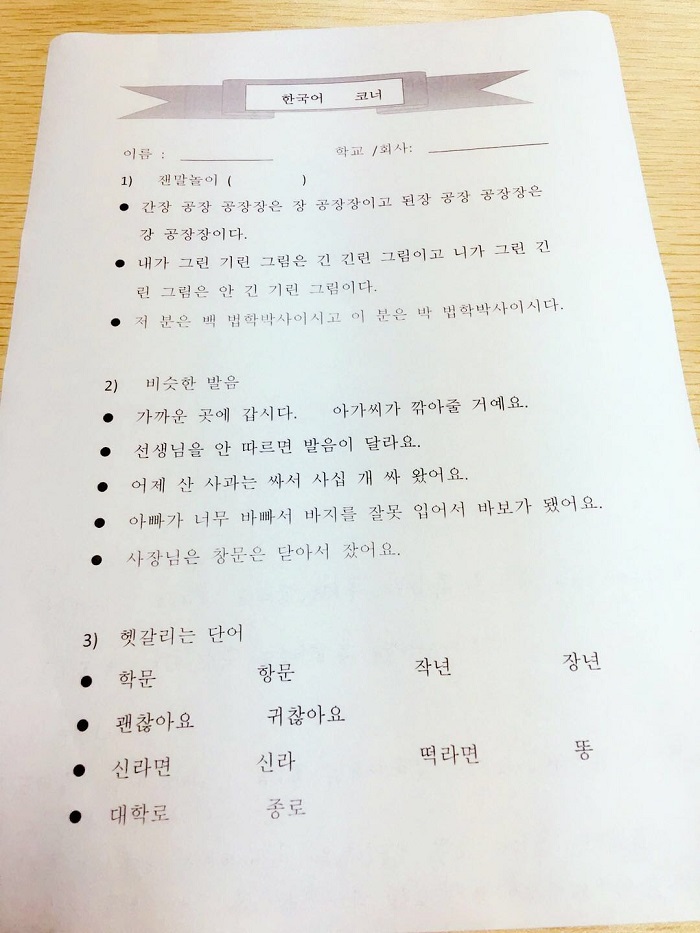 한국어 코너
이름 : 학교 /회사:
1) 잰말놀이 ( )
● 간장 공장 공장장은 장 공장장이고 된장 공장 공장장은
강 공장장이다.
● 내가 그린 기린 그림은 긴 긴린 그림이고 니가 그런 긴
린 그림은 안 긴 기린 그림이다.
● 저 분은 백 법학박사이시고 이 분은 박 법학박사이시다.
2) 비슷한 발음
● 가까운 곳에 갑시다. 아가씨가 깎아줄 거예요.
● 선생님을 안 따르면 발음이 달라요.
● 어제 산 사과는 싸서 사십 개 싸 왔어요.
● 아빠가 너무 바빠서 바지를 잘못 입어서 바보가 됐어요.
● 사장님은 창문은 닫아서 잤어요.
3) 헷갈리는 단어
● 학문 항문 작년 장년
● 괜찮아요 귀찮아요
● 신라면 신라 떡라면 똥
● 대학로 종로